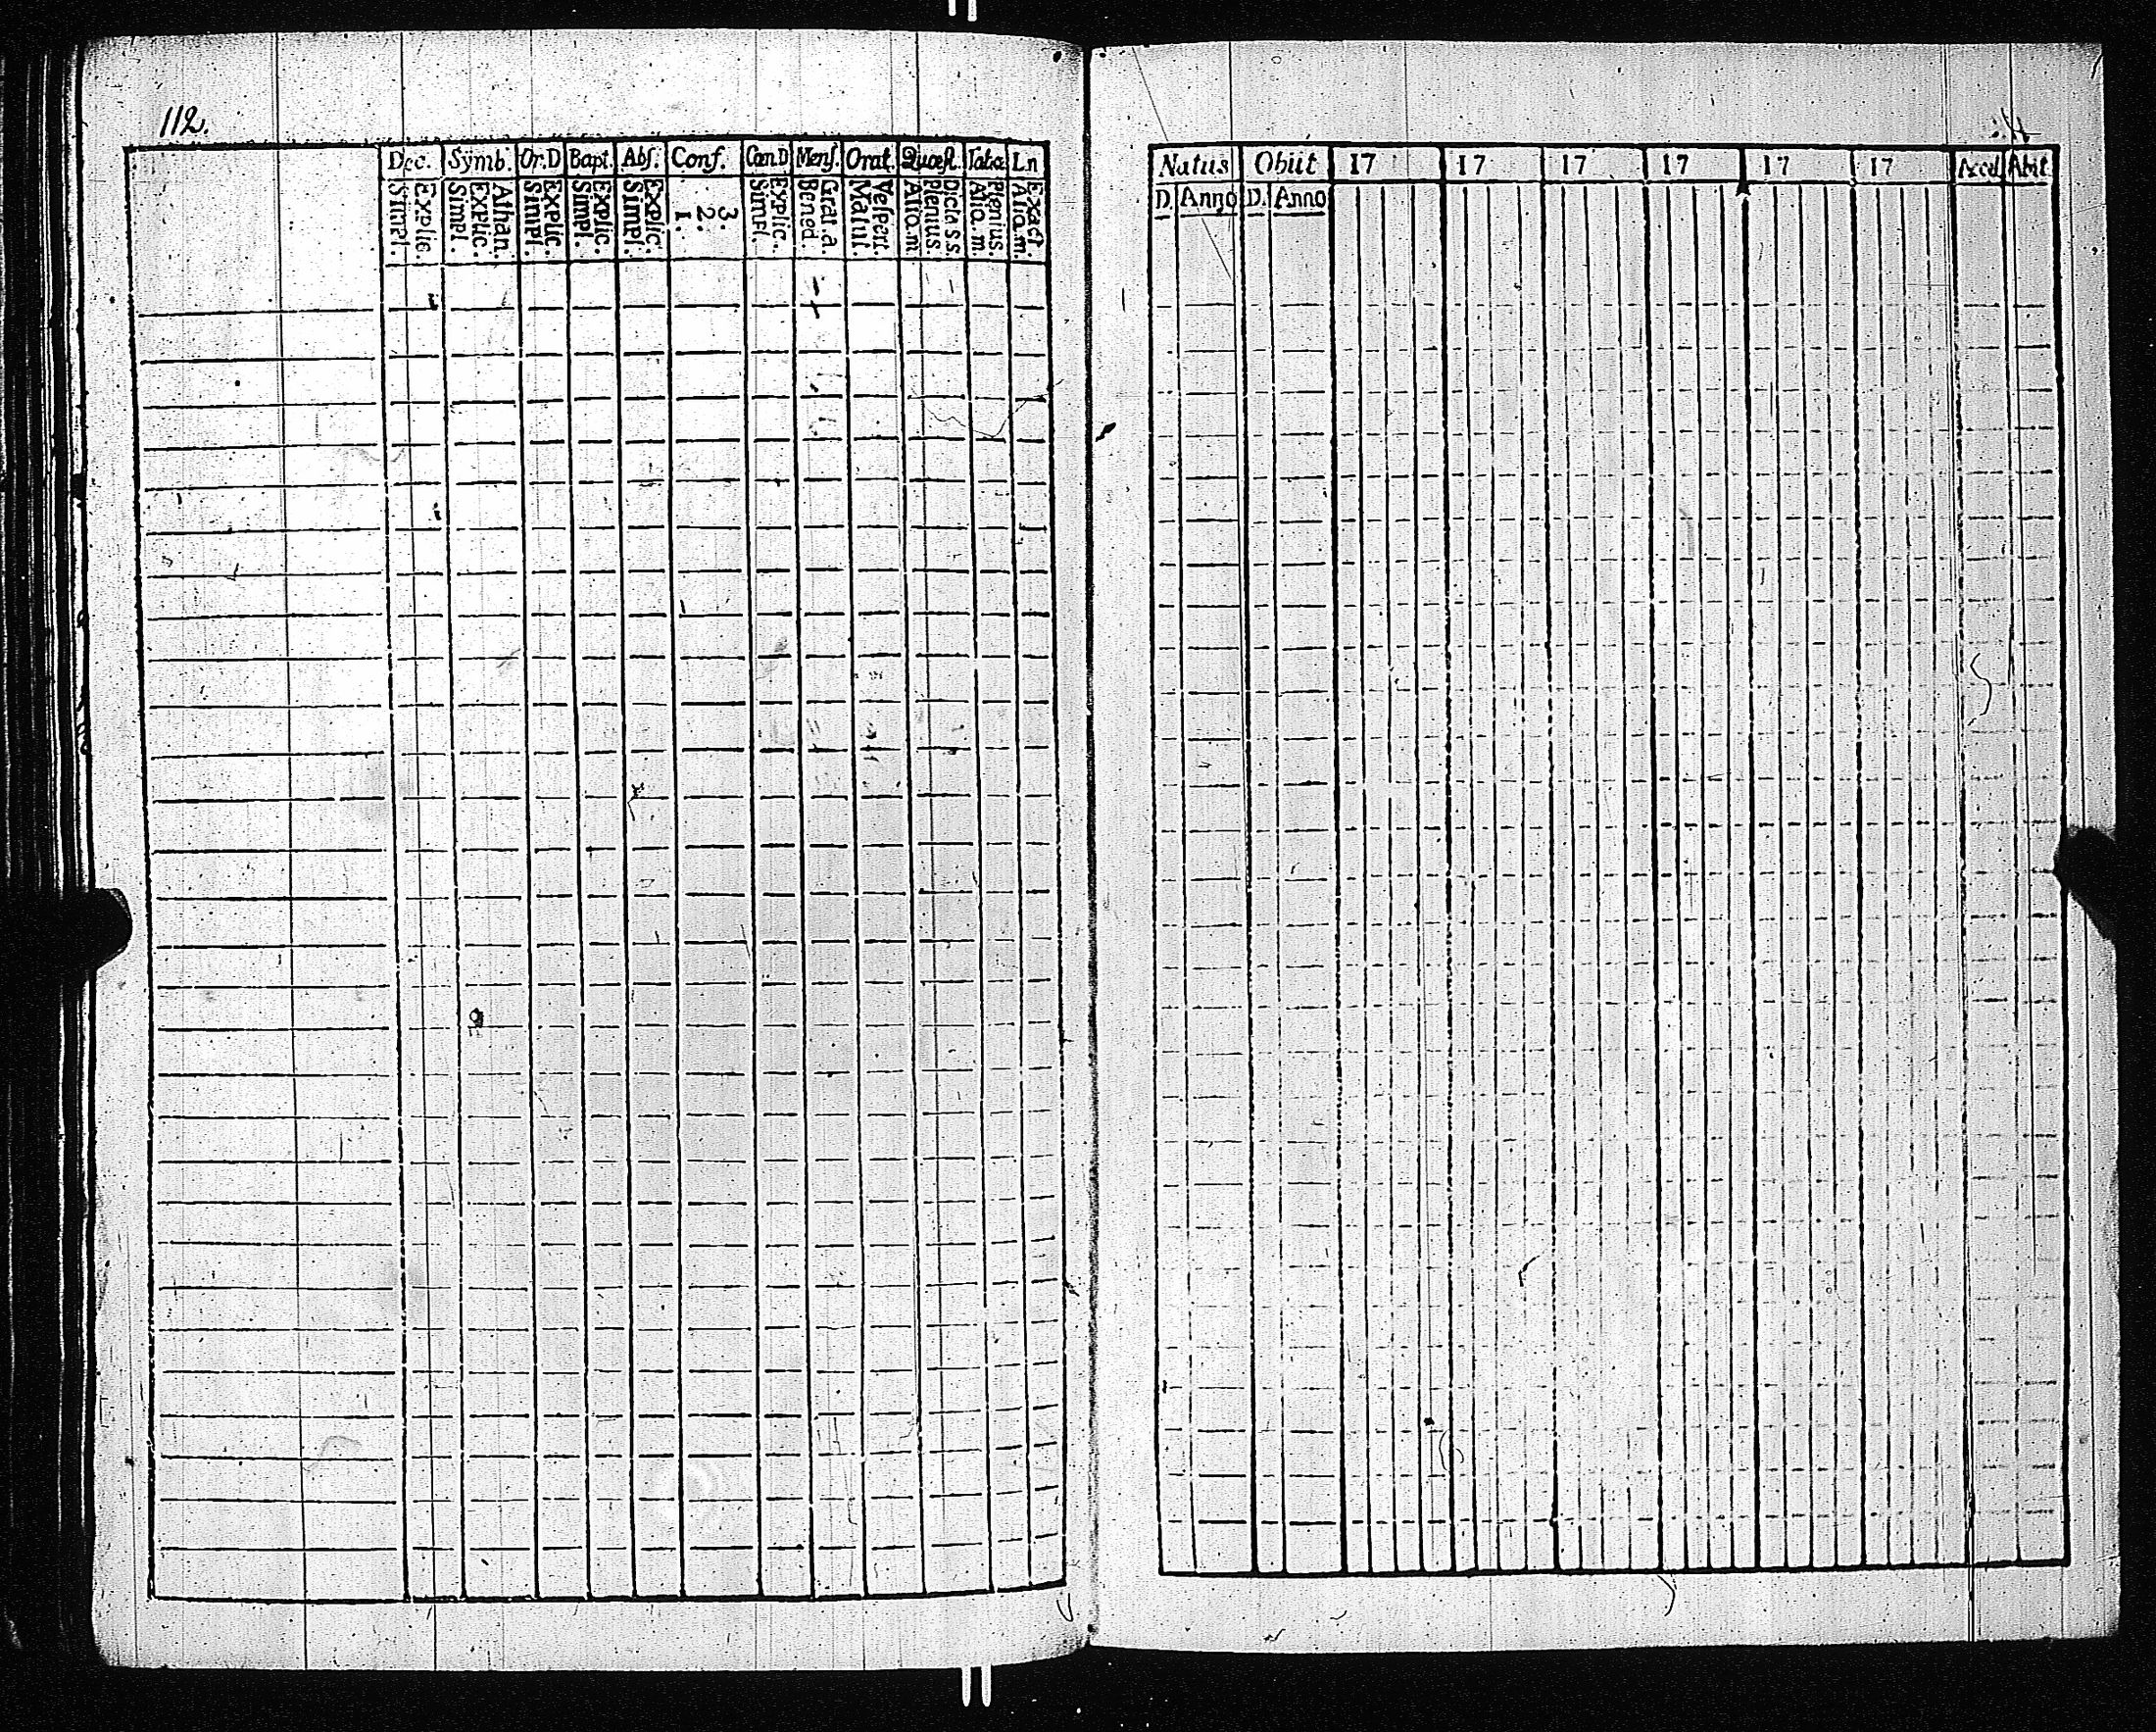 112.
Dec. Symb. Or.D Bapt. Abs. Conf. Cœn.D Mens. Orat. Quæst. Tab.æ L.n
Explic. Simpl. Athan. Explic. Simpl. Explic. Simpl. Explic. Simpl. Explic. Simpl. 3. 2. 1. Explic. Simpl. Grat.a. Bened. Vespert. Matut. Dicta s.s. Plenius. Alio.m. Plenius. Alio.m. Exact. Alio.m.
Natus Obiit 17 17 17 17 17 17 Acced Abit
D. Anno D. Anno